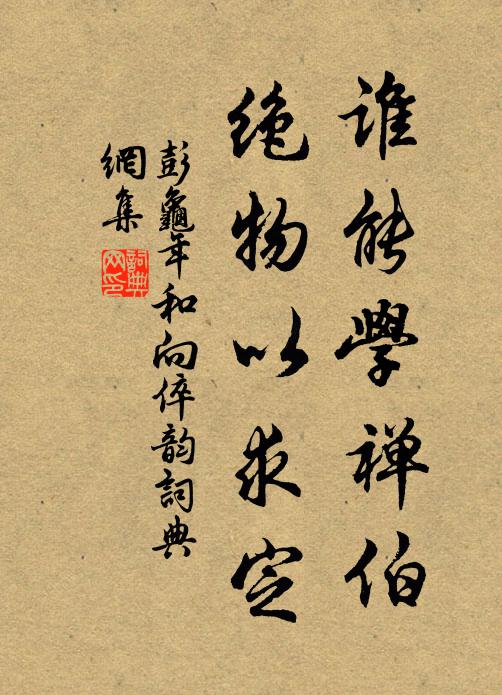 谁能學禅伯
绝物以求定
彭龜年和向倅韵詞典
網集
詞典
网印